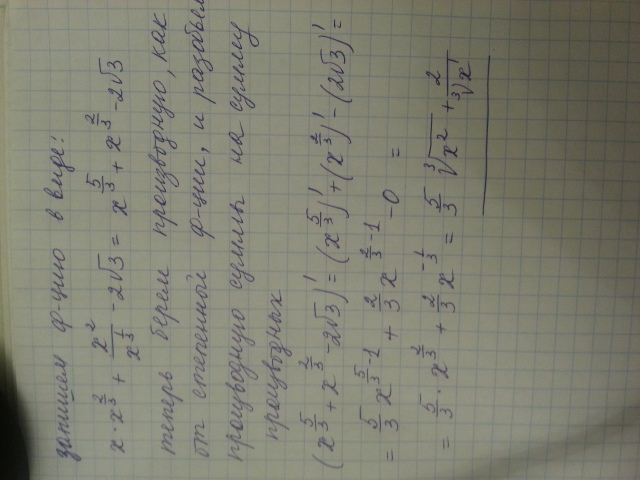 запишем ф-цию в виде:
x·x^{2/3} + x^2/x^{1/3} - 2√3 = x^{5/3} + x^{2/3} - 2√3
теперь берем производную, как
от степенной ф-ции, и разобьем
производную суммы на сумму
производных
(x^{5/3} + x^{2/3} - 2√3)' = (x^{5/3})' + (x^{2/3})' - (2√3)' =
= 5/3 x^{5/3 - 1} + 2/3 x^{2/3 - 1} - 0 =
= 5/3 · x^{2/3} + 2/3 x^{-1/3} = 5/3 ∛x^2 + 2/∛x